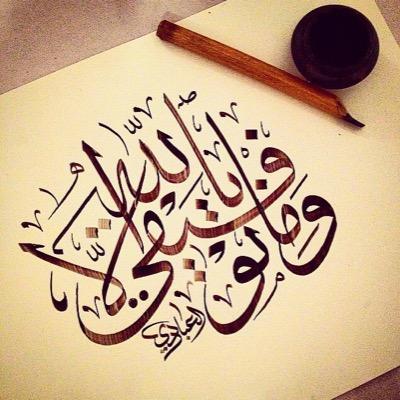 وما توفيقي إلا بالله
العبادي